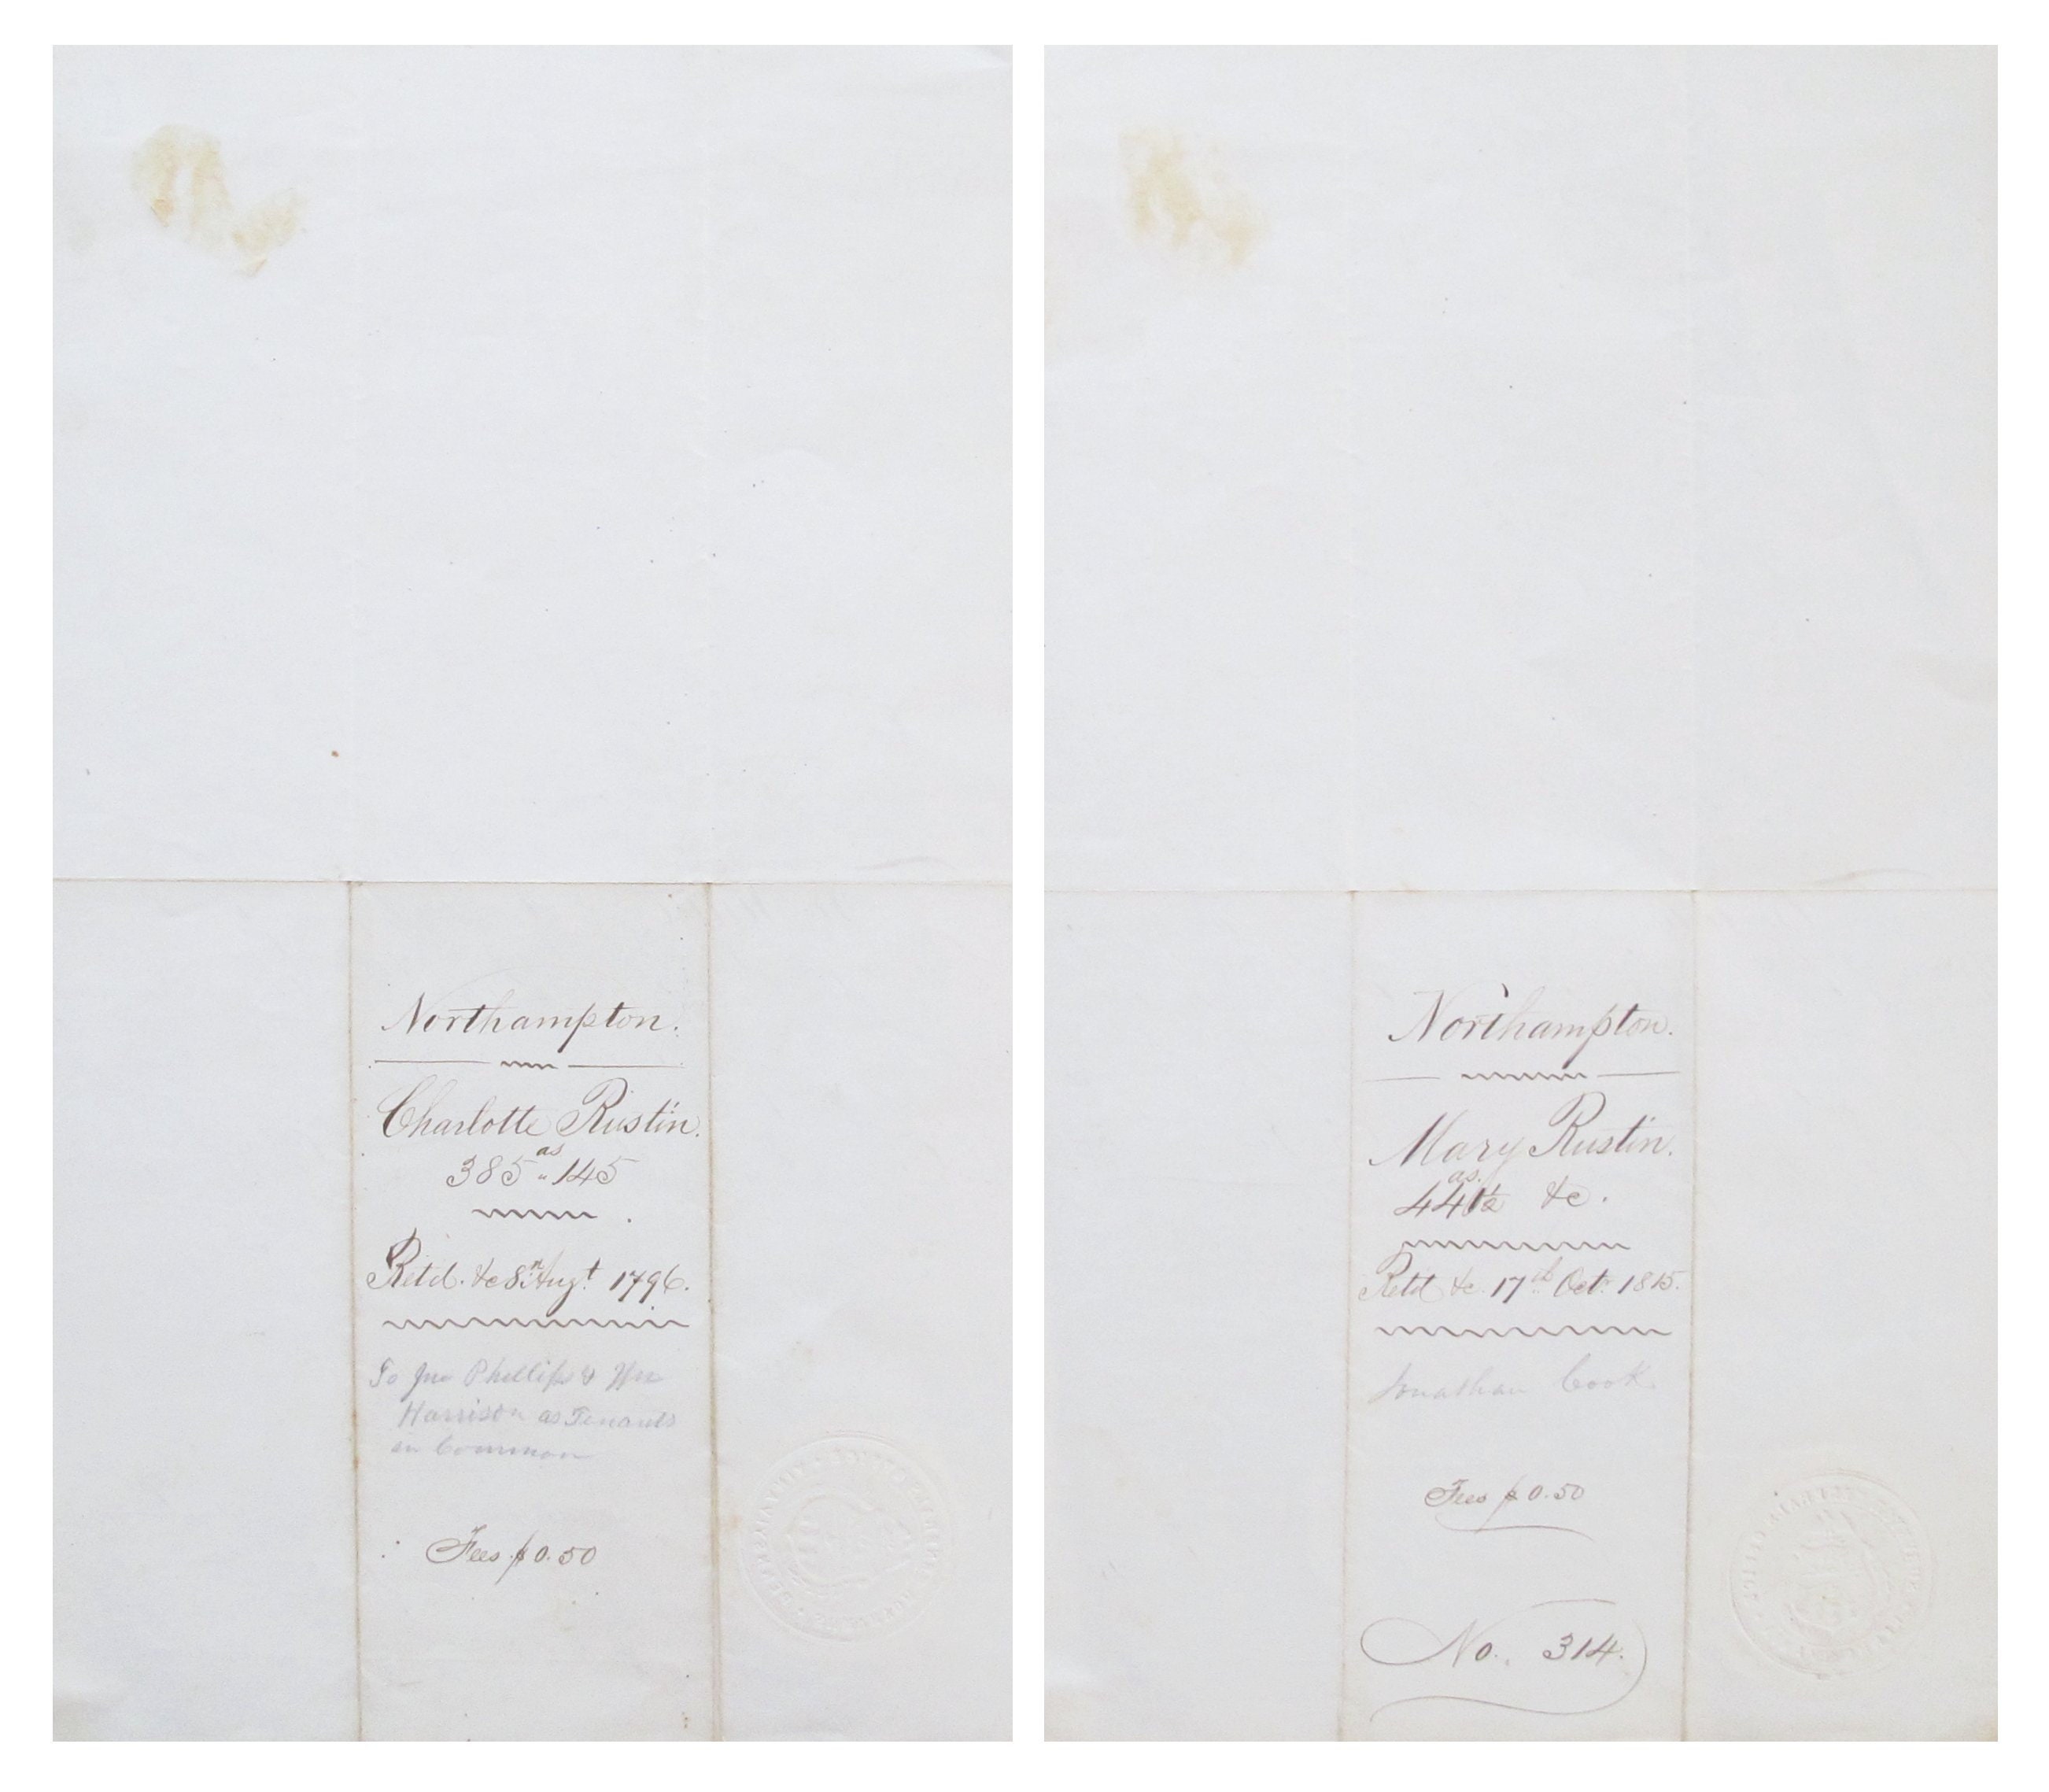 Northampton.
Charlotte Rustin.
385 as 145
Retd. &c 8th Augt. 1796.
To Jno Phillips & Wm
Harrison as Tenants
in Common
Fees $0.50
Northampton.
Mary Rustin.
as.
441½ &c.
Retd &c. 17th Octr. 1815.
Jonathan Cook.
Fees $0.50
No. 314.